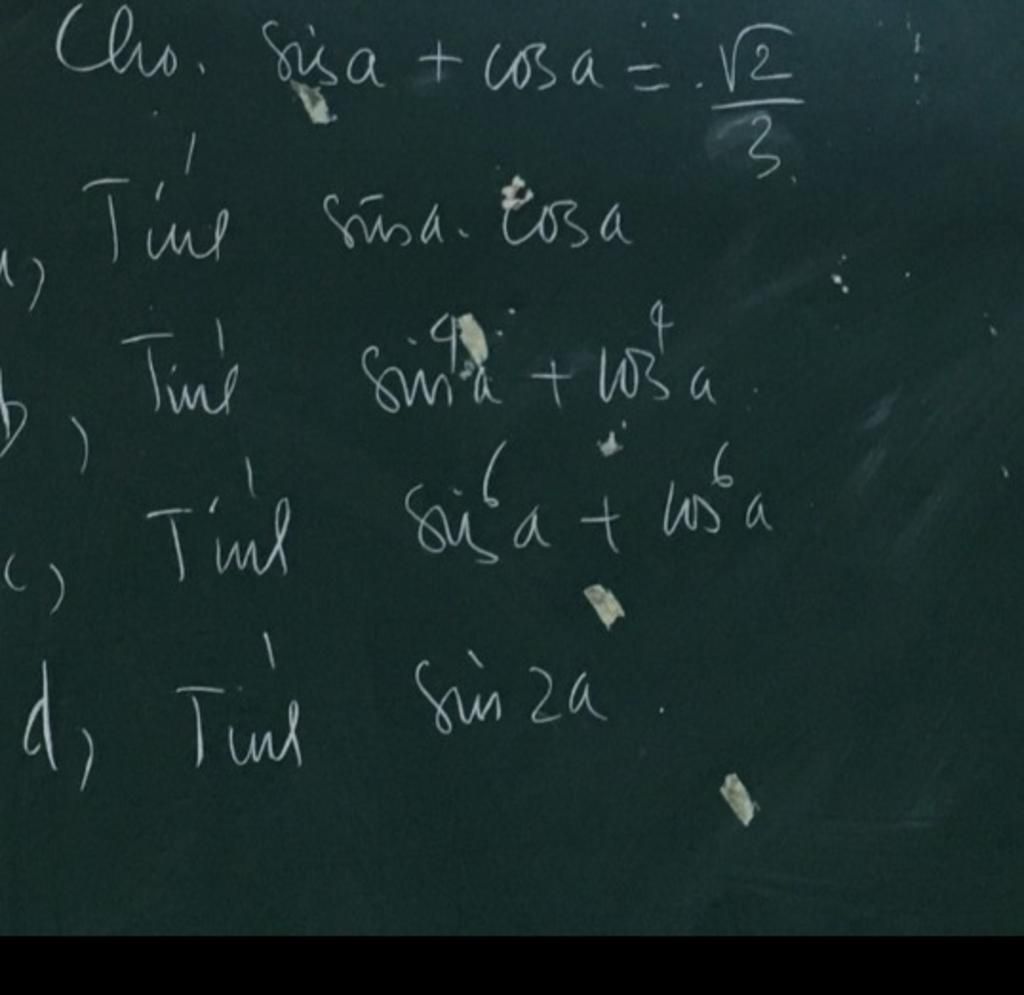 Cho. sin a + cos a = √2/3
a, Tính sin a. cos a
b, Tính sin⁴a + cos⁴a.
c, Tính sin⁶a + cos⁶a
d, Tính sin 2a.